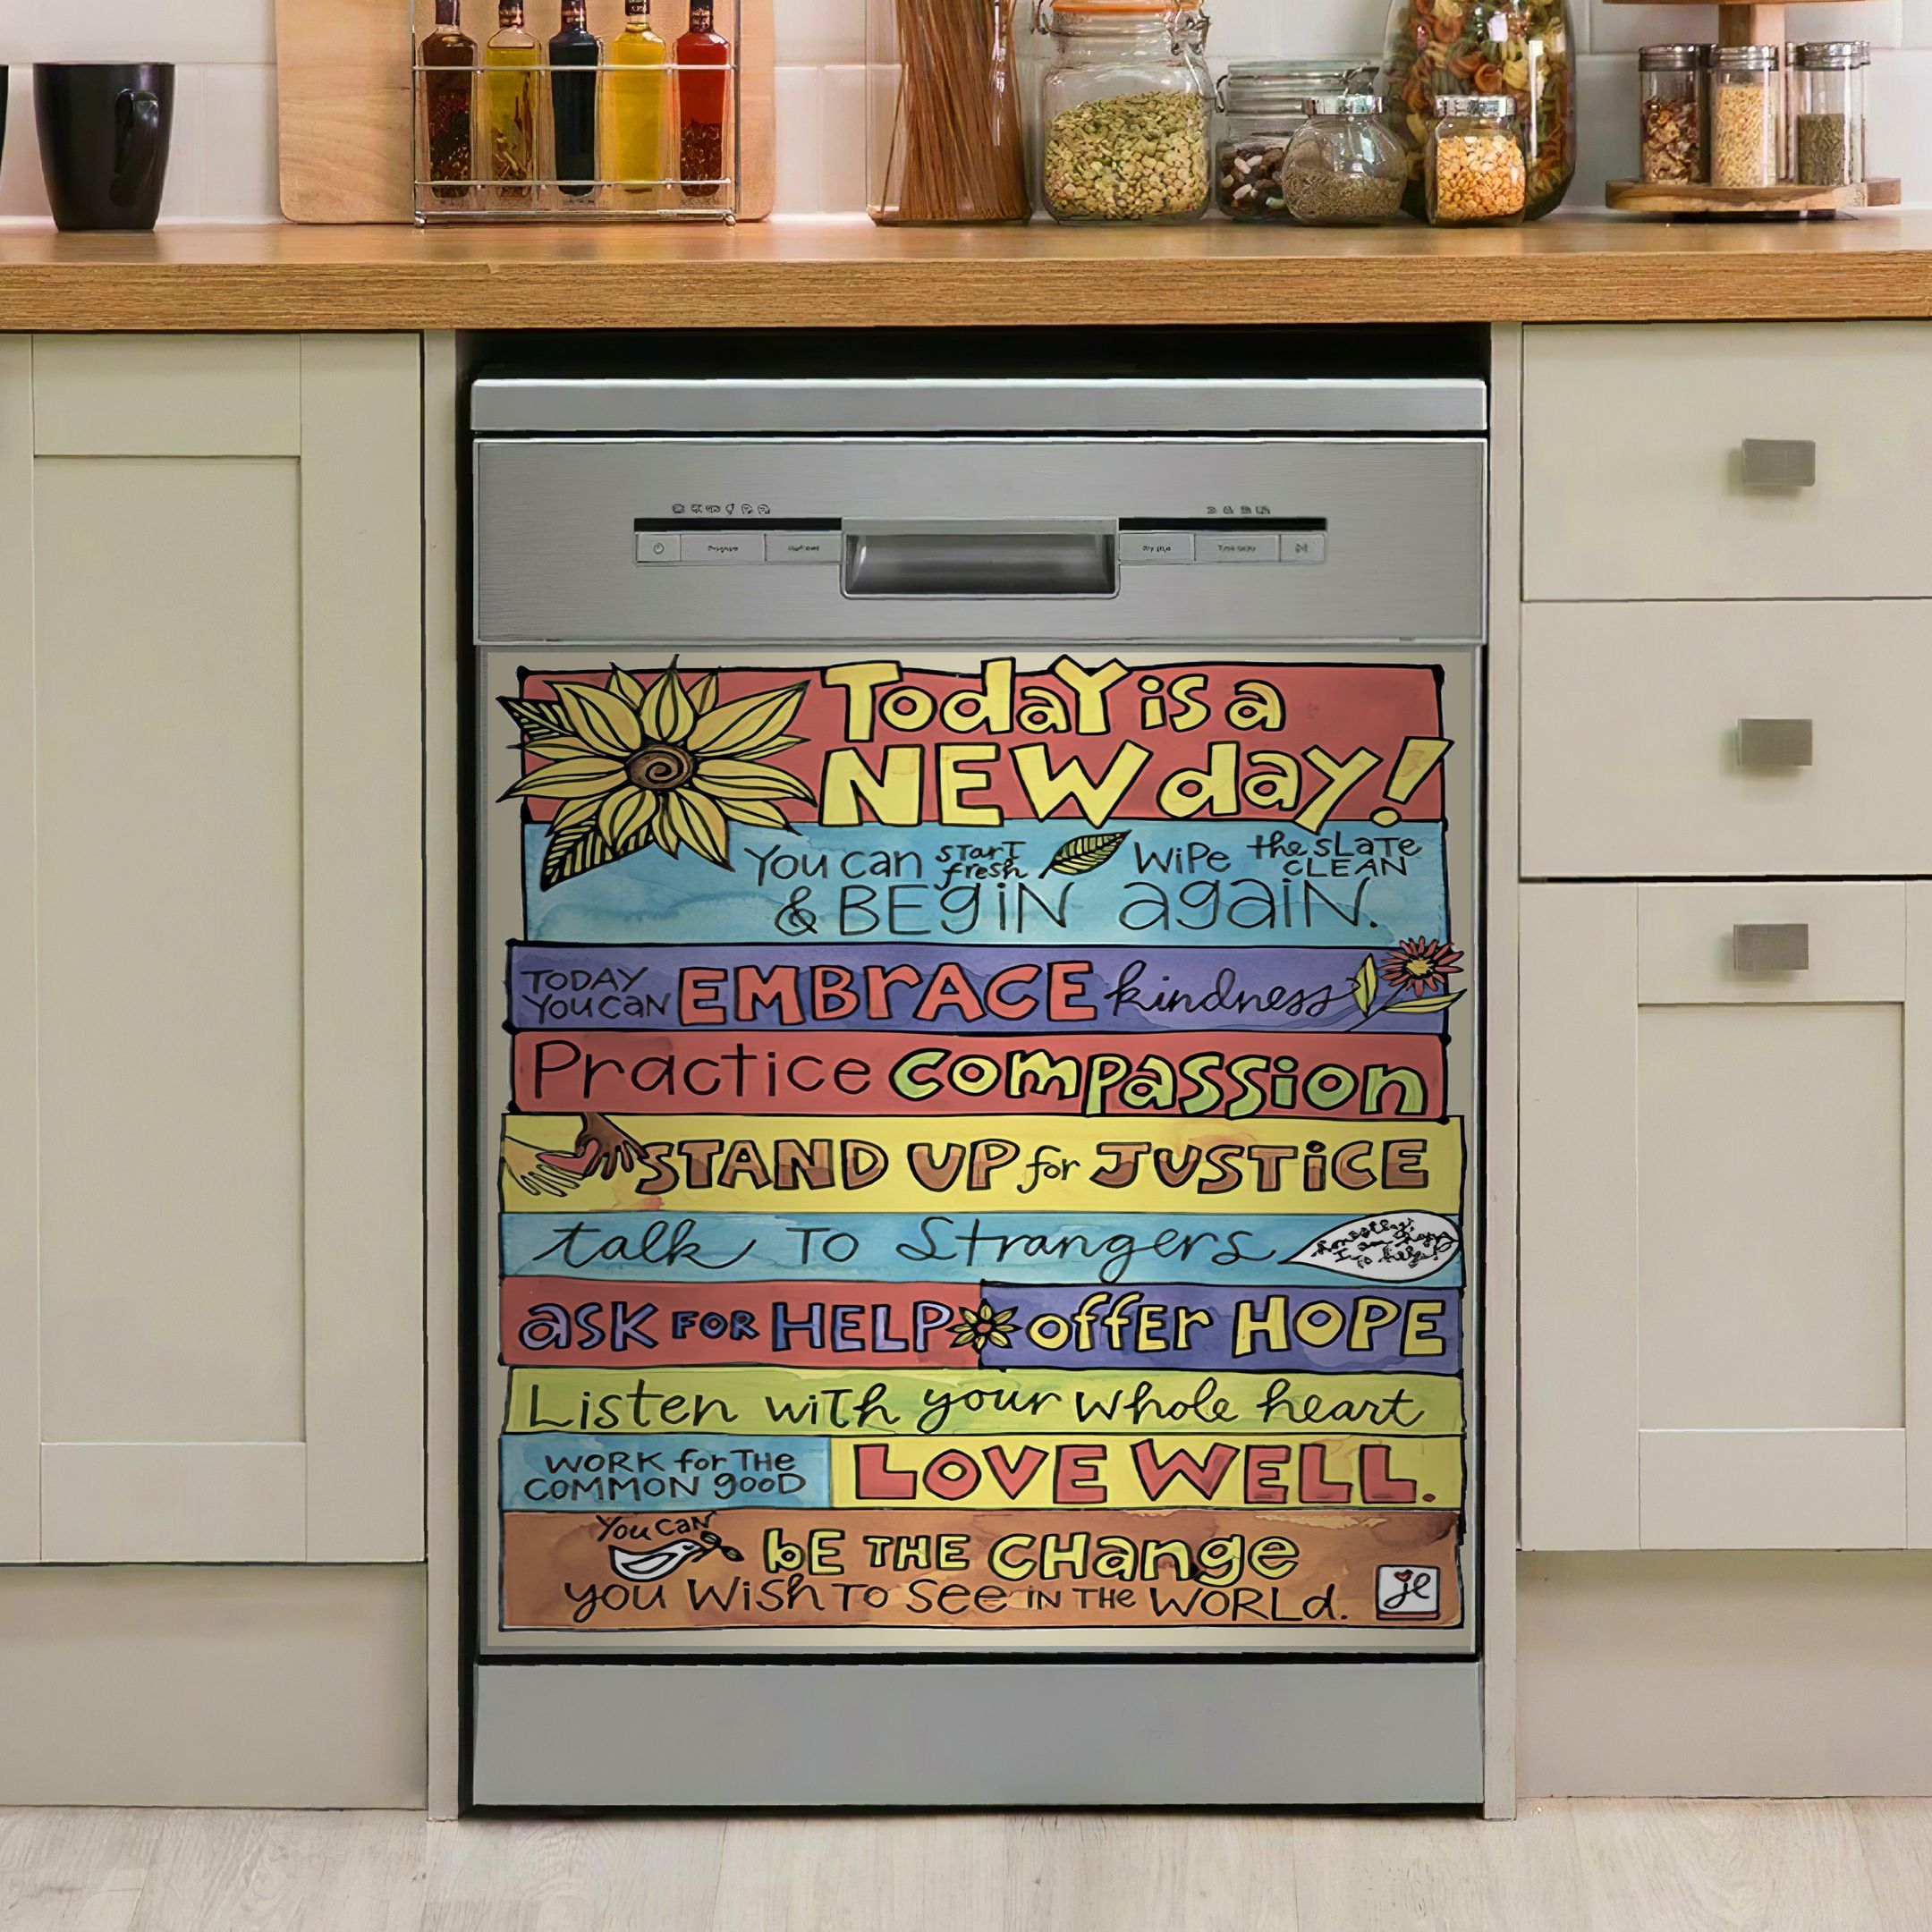 Today is a
NEW day!
You can start fresh wipe the slate clean
& BEGiN again.
TODAY YOU CAN EMBrACE kindness
Practice compassion
STAND UP for JUSTiCE
talk TO Strangers
ask FOR HELP offEr HOPE
Listen wiTh your whole heart
WORK for THE COMMON gooD LOVE WELL.
You CaN bE THE CHange
you WiSh TO See iN THE WORLd.
jl